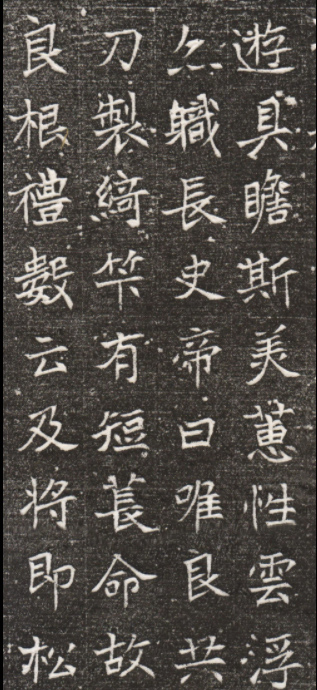 遊具瞻斯美蕙性雲浮
尒職長史帝曰唯良共
刀製綺笇有短萇命故
良根禮數云及将即松